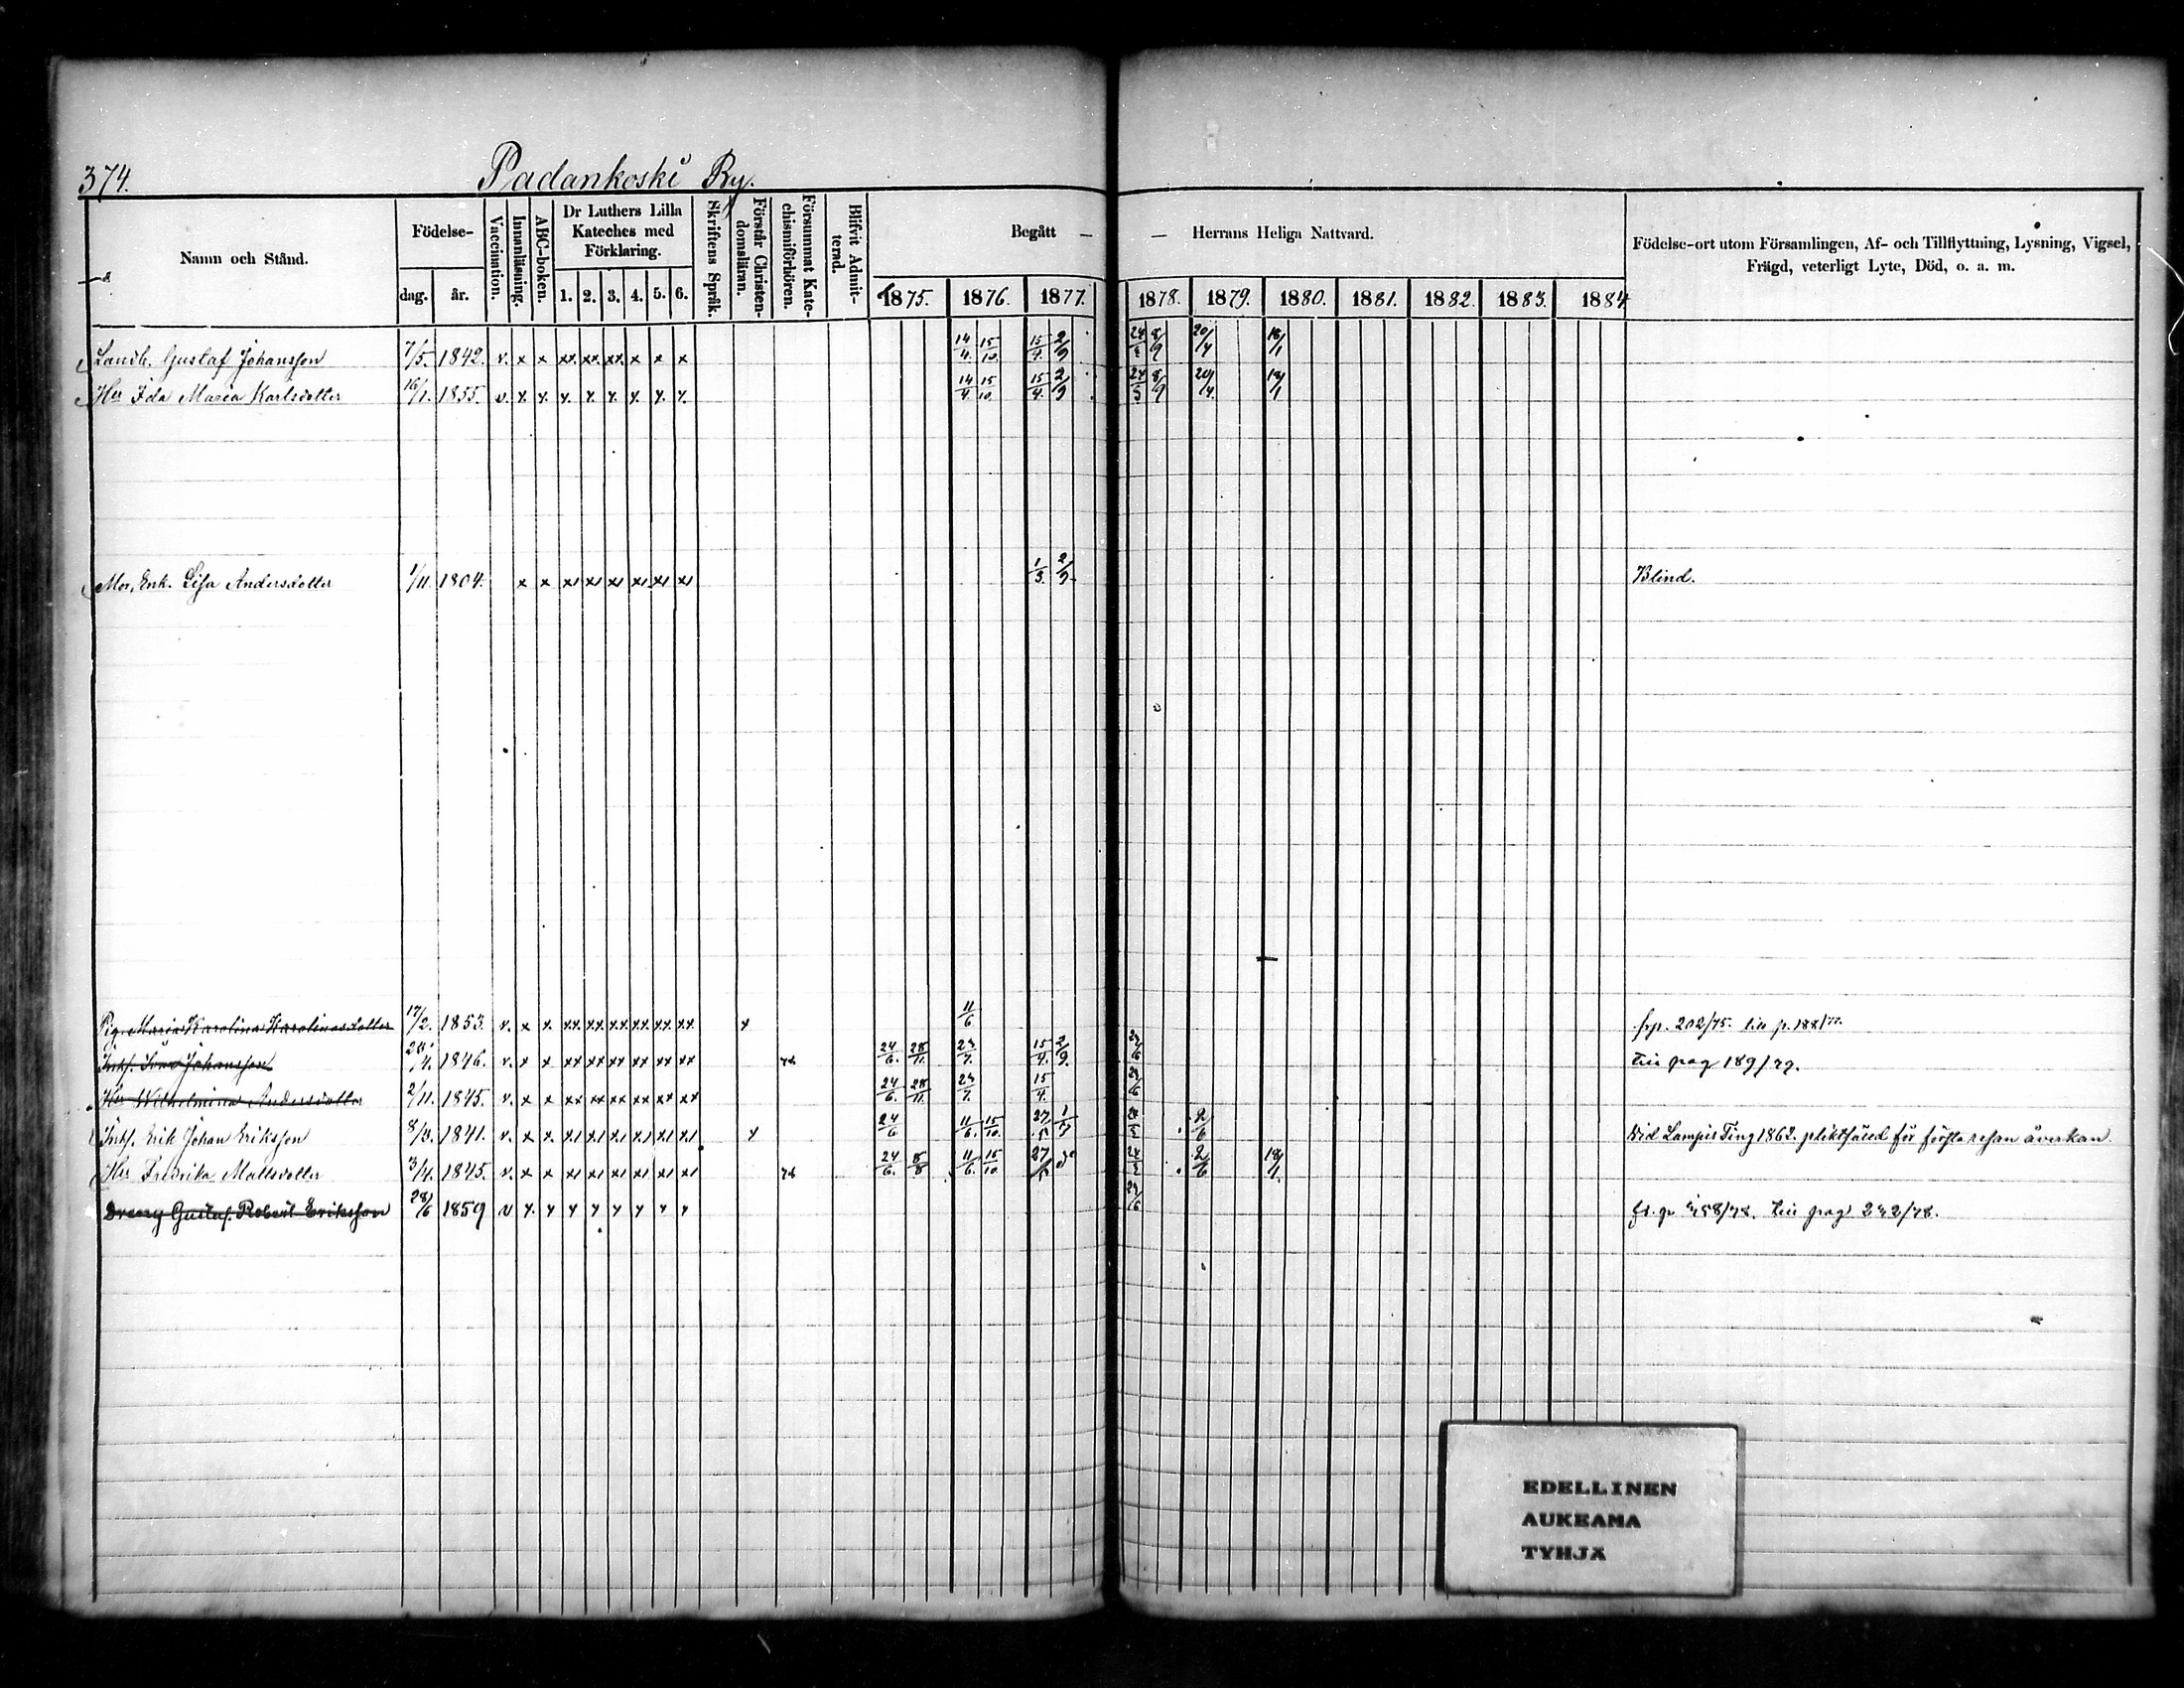 374.
Padankoski By.
Namn och Stånd.
Födelse-
dag.
år.
Vaccination.
Innanläsning.
ABC-boken.
Dr Luthers Lilla Kateches med Förklaring.
1. 2. 3. 4. 5. 6.
Skriftens Språk.
Förstår Christendomsläran.
Försummat Katechismiförhören.
Blifvit Admitterad.
Begått — — Herrans Heliga Nattvard.
1875. 1876. 1877. 1878. 1879. 1880. 1881. 1882. 1883. 1884
Födelse-ort utom Församlingen, Af- och Tillflyttning, Lysning, Vigsel, Frägd, veterligt Lyte, Död, o. a. m.
Landb. Gustaf Johansson 7/5. 1842. v. x x xx xx xx x x x 14/4. 15/10. 15/4. 2/9 20/4 18/1
Hu Ida Maria Karlsdotter 16/1. 1855. v. x x x x x x x x 14/4. 15/10. 15/4. 2/9 20/4 18/1
Mor, Enk. Lisa Andersdotter 1/11. 1804. x x 1/3. 2/9. Blind.
Pig. Maria Karolina Karolinasdotter 17/2. 1853. v. x x xx xx xx xx xx xx x 11/6 frp. 202/75. till p. 188/77.
Inhs. Johansson 1846. v. x x xx xx xx xx xx xx 24/6. 28/11. 15/4. 2/9. till pag 189/79.
Hu Wilhelmina Andersdotter 2/11. 1845. v. x x xx xx xx xx xx xx 24/6. 28/11. 15/4.
Inhs. Erik Johan Eriksson 8/3. 1841. v. x x x 24/6 11/6. 15/10. 2/6 Vid Lampis Ting 1862. pliktfäld för första resan åverkan.
Hu Fredrika Mattsdotter 3/4. 1845. v. x x 24/6. 8/8 11/6. 15/10. 2/6 18/1.
Dreng Gustaf Robert Eriksson 28/6 1859 v x x x x x x x x till pag 242/78.
EDELLINEN
AUKEAMA
TYHJÄ